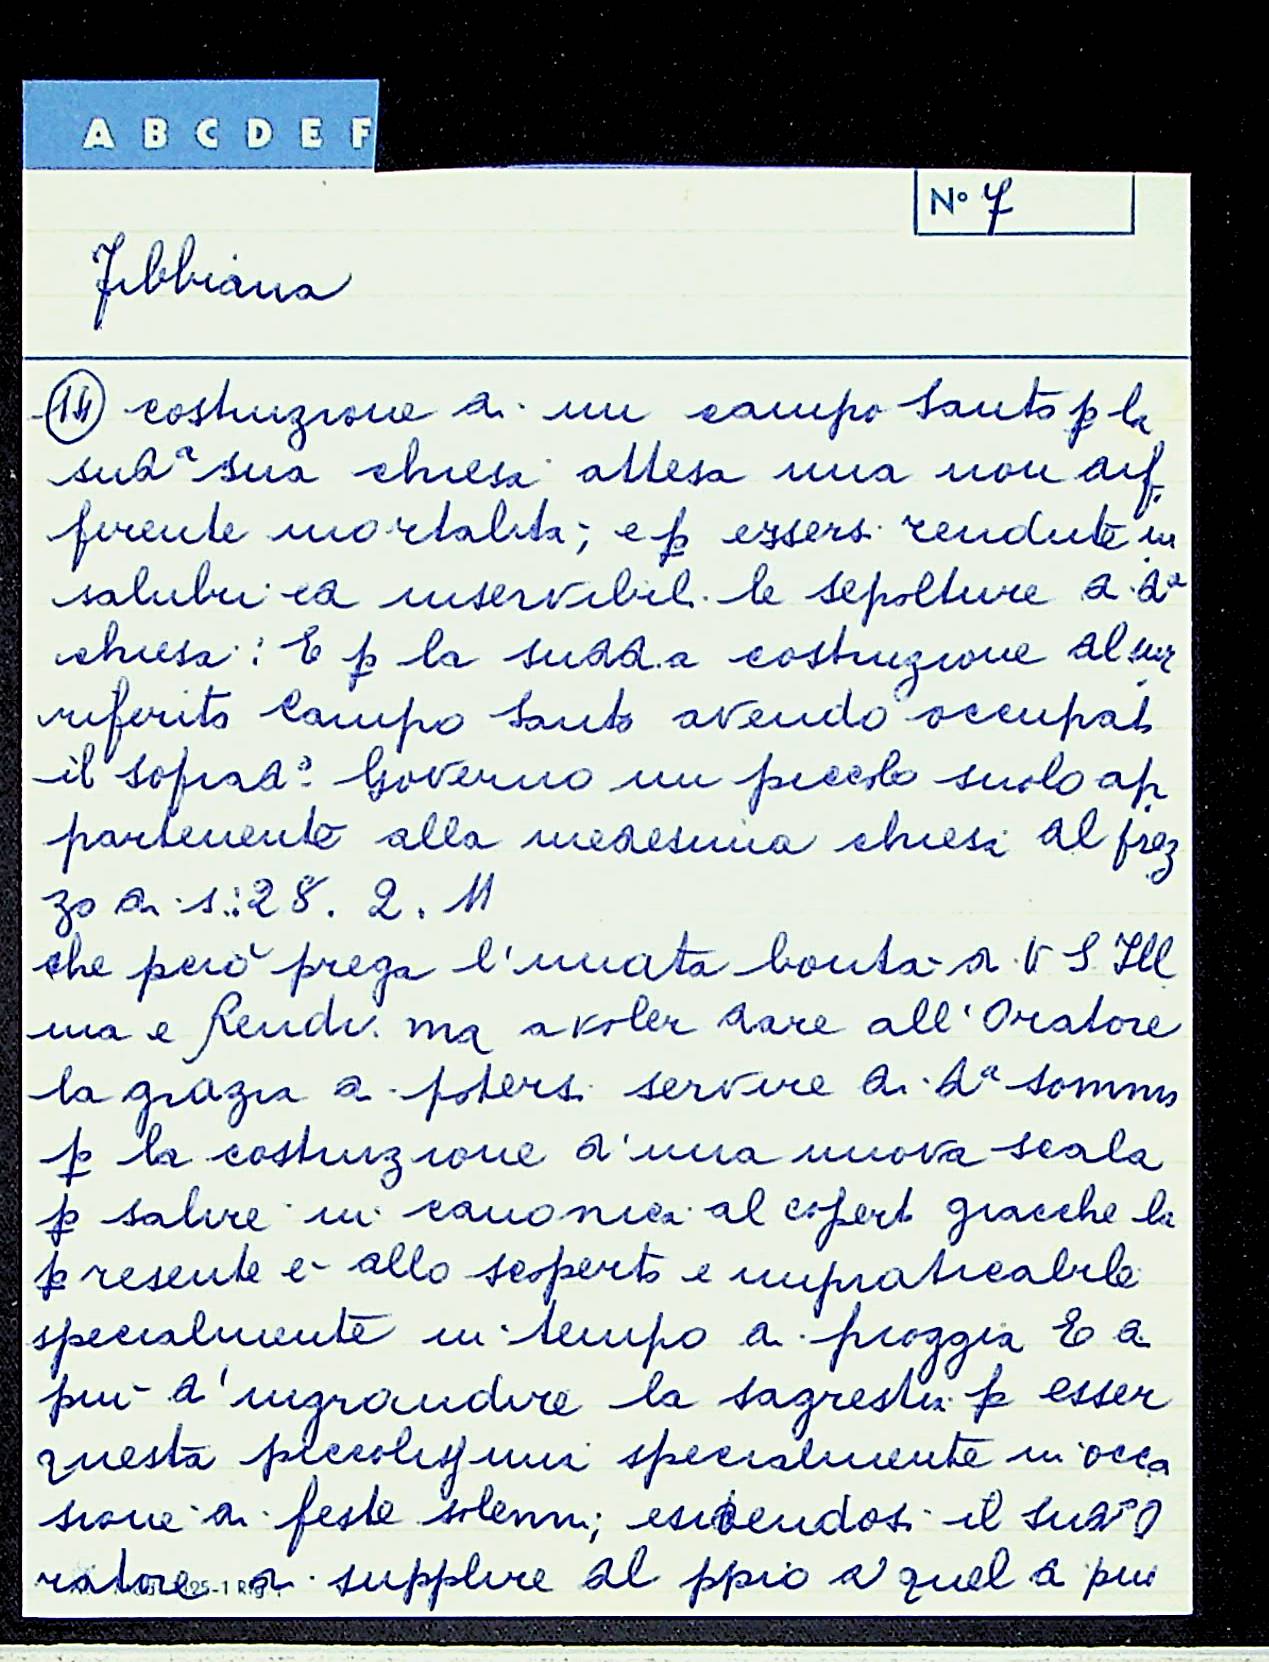 A B C D E F
Nº 7
Fibbiana
(14) costruzione di un campo Santo p la
sudª sua chiesa attesa una non dif
ferente mortalità; e p essersi rendute in
salubri ed inservibili le sepolture di dª
chiesa: E p la sudd.a costruzione del sur
riferito Campo Santo avendo occupato
il sopradº Governo un piccolo suolo ap
partenente alla medesima chiesa del prez
zo di s.: 28. 2. 11
che però prega l'innata bontà di V S Ill
ma e Rendv. ma a voler dare all'Oratore
la grazia di potersi servire di dª somma
p la costruzione d'una nuova scala
p salire in canonica al coperto giacche la
presente è allo scoperto e impraticabile
specialmente in tempo di pioggia E di
più d'ingrandire la sagrestia p esser
questa piccolissima specialmente in occa
sione di feste solenni; esibendosi il sudº O
ratore di supplire del ppio a quel di più